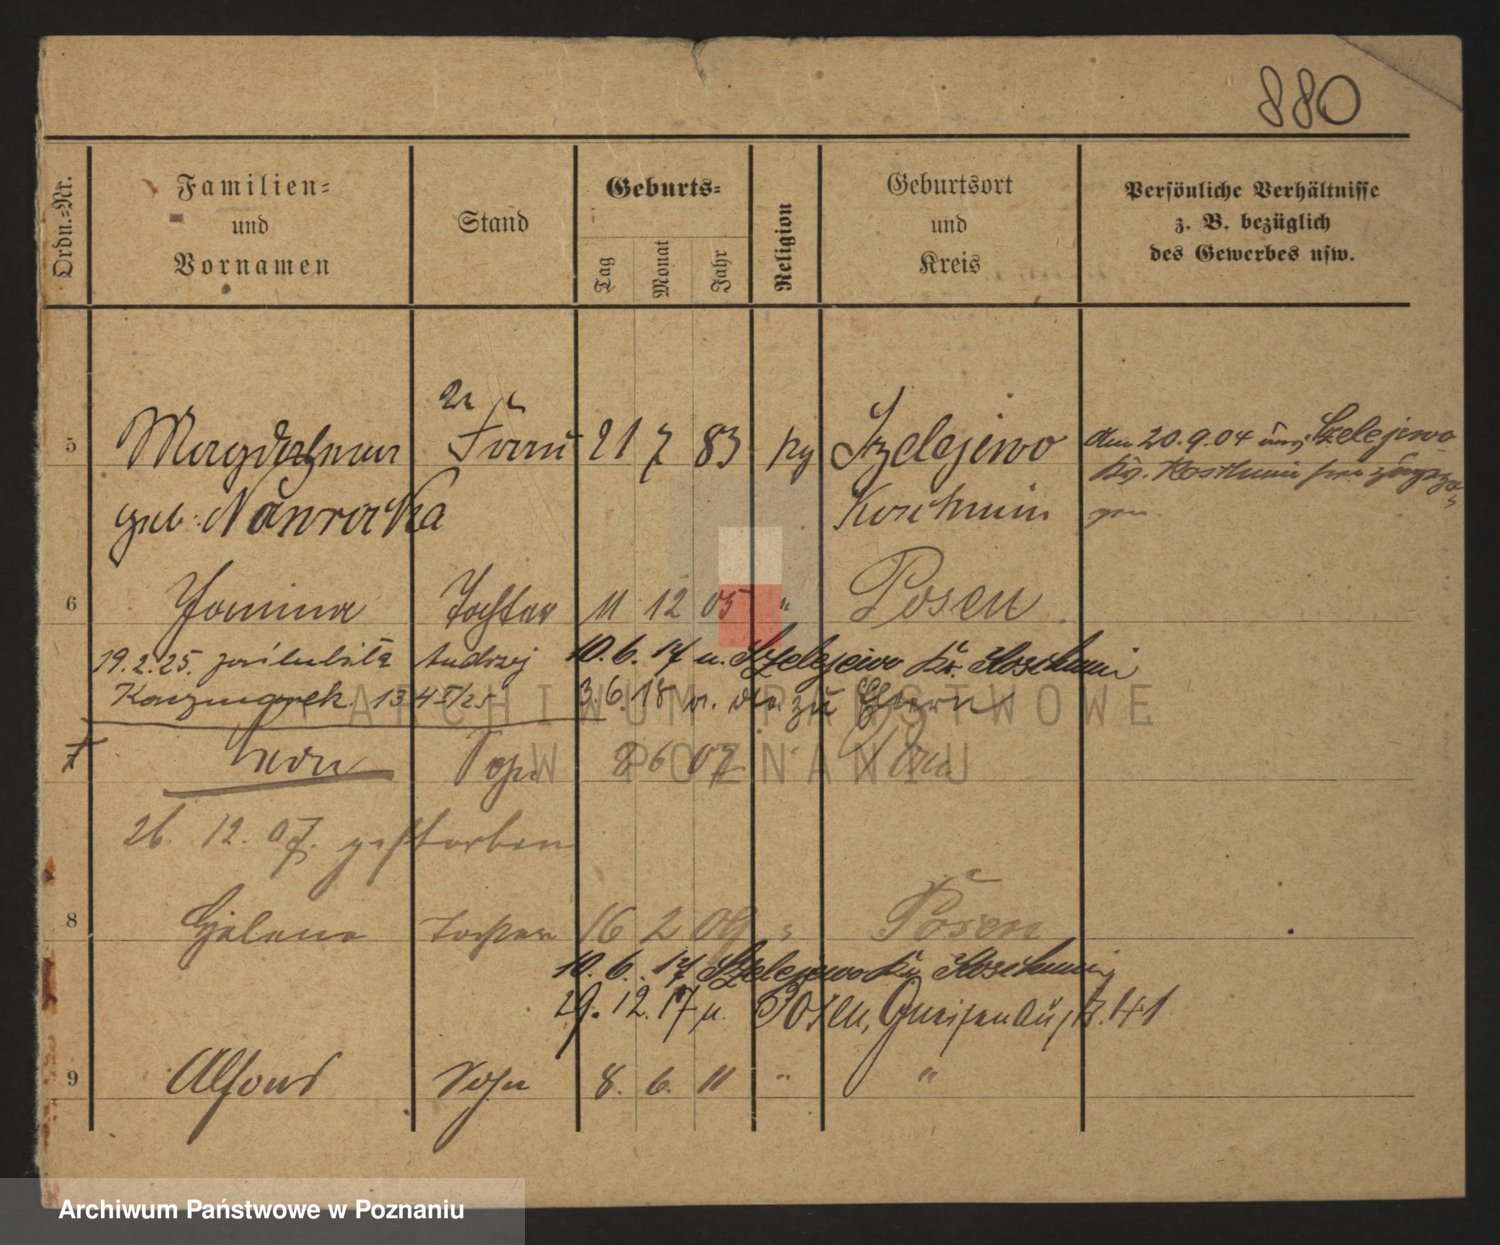 880
Ordn.-Nr.
Familien-
und
Vornamen
Stand
Geburts-
Tag
Monat
Jahr
Religion
Geburtsort
und
Kreis
Persönliche Verhältnisse
z. B. bezüglich
des Gewerbes usw.
5 Magdalena Frau 21 7 83 Szelejewo den 20.9.04 Szelejewo
geb. Nawrocka Koschmin
6 Janina Tochter 11 12 05 " Posen
19.2.25. Andrzej 10.6.17 n. Szelejewo Kr. Koschmin
Kaczmarek 3.6.18
Leon Sohn 2 6 07
26. 12. 07. gestorben
8 Helena Tochter 16 2 09 " Posen
10. 6. 17 Szelejewo Kr. Koschmin
29. 12. 17 n. Posen, Gneisenaustr. 41
9 Alfons Sohn 8. 6. 11 " "
ARCHIWUM PAŃSTWOWE
W POZNANIU
Archiwum Państwowe w Poznaniu